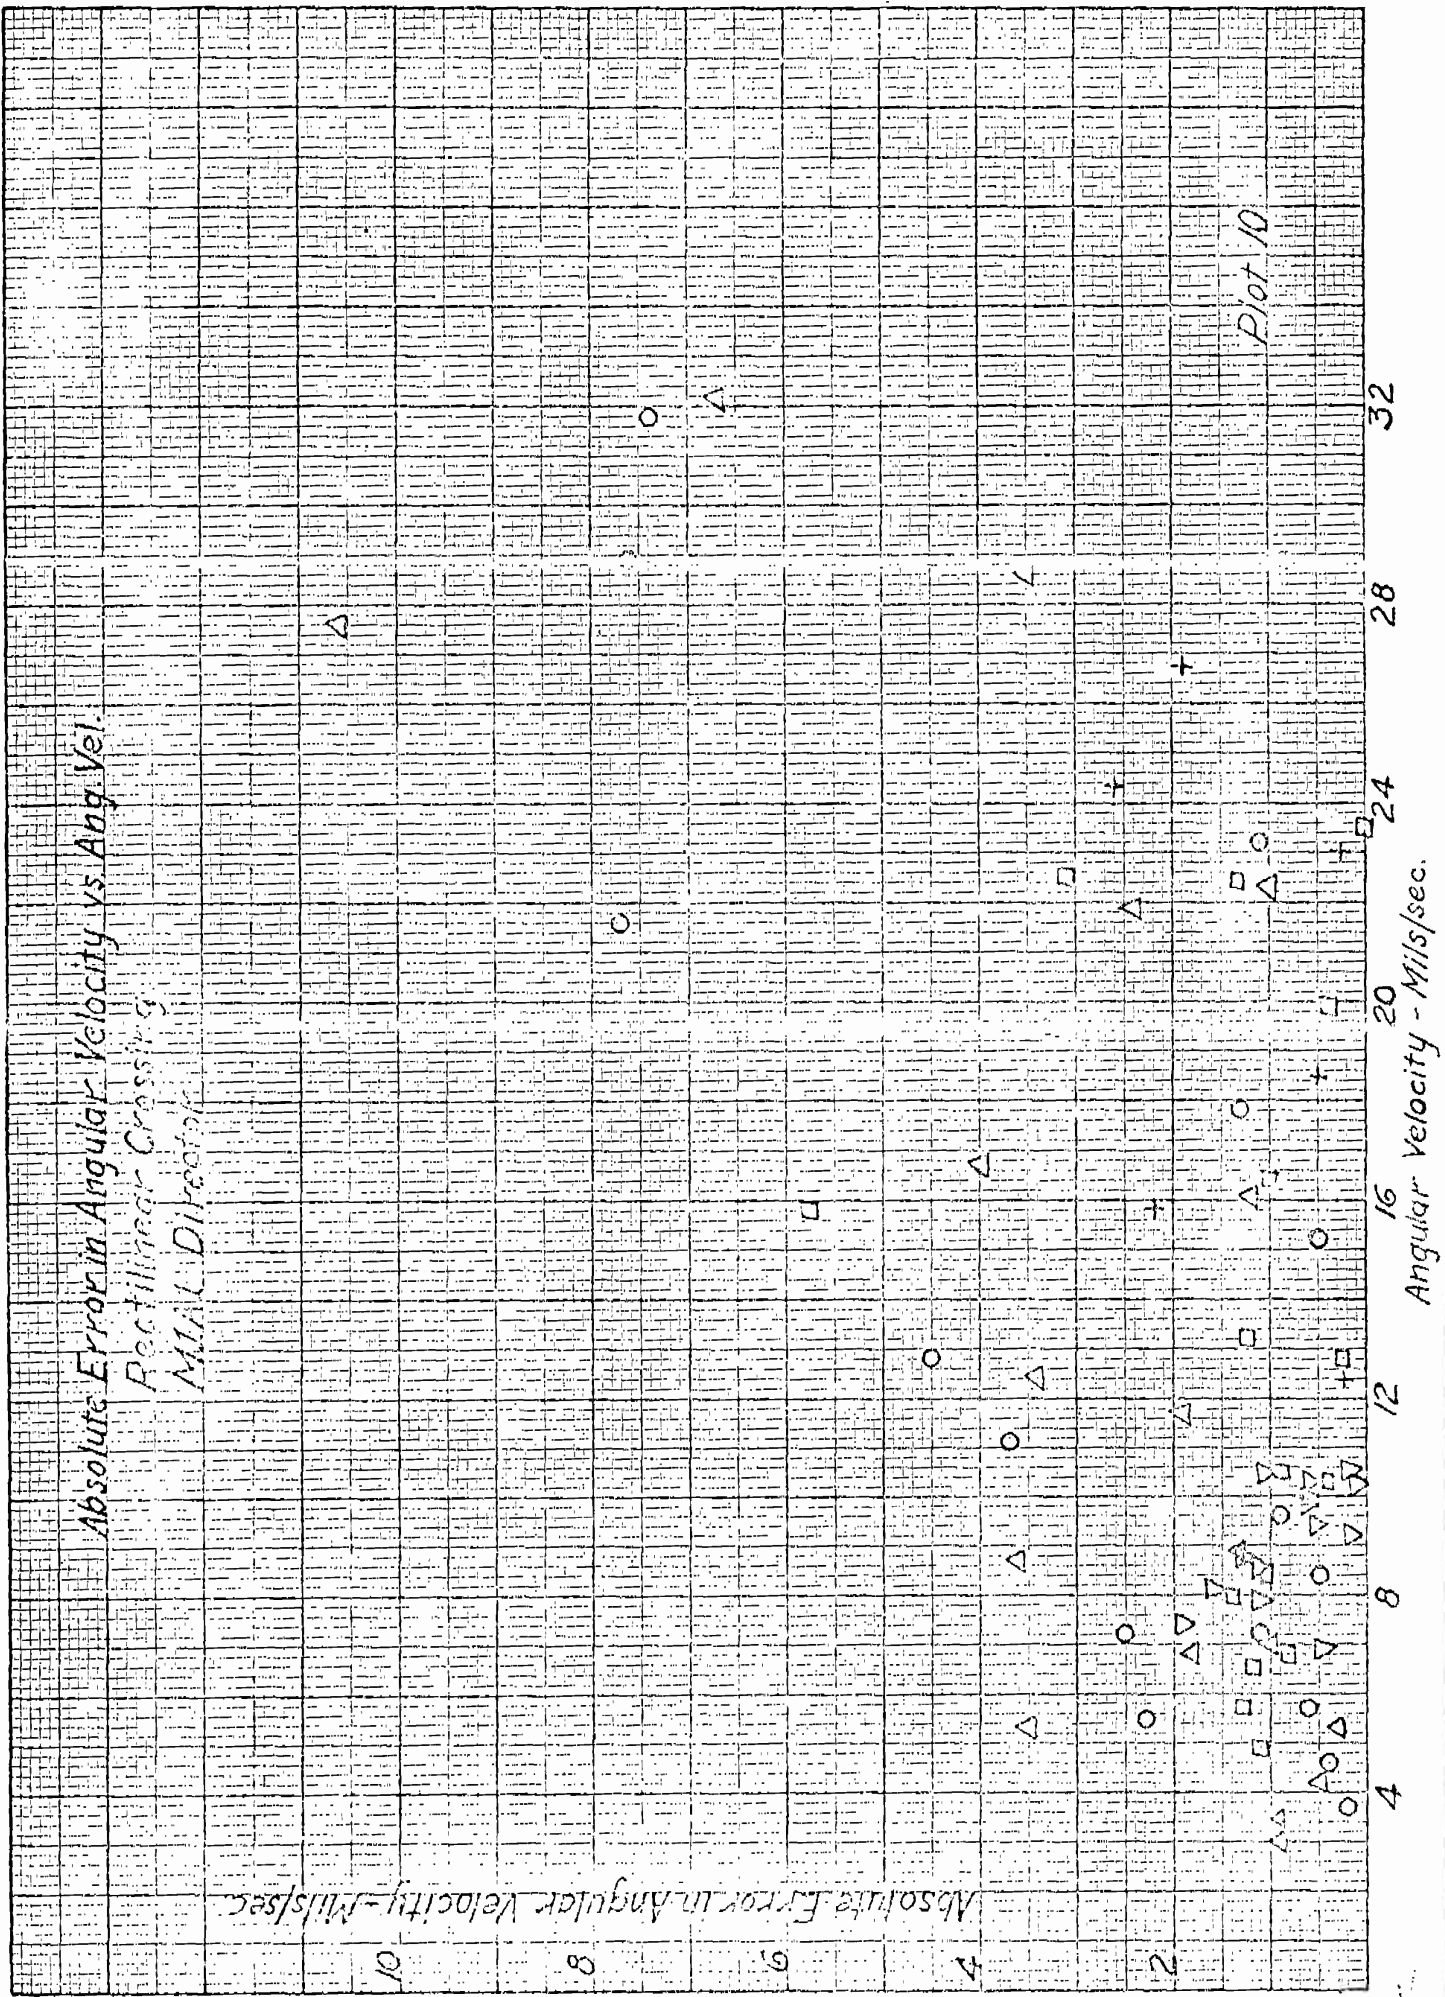 Absolute Error in Angular Velocity vs. Ang. Vel.
Rectilinear Crossing
Director
Absolute Error in Angular Velocity - Mils/sec
10
8
6
4
2
4
8
12
16
20
24
28
32
Angular Velocity - Mils/sec.
Plot 10